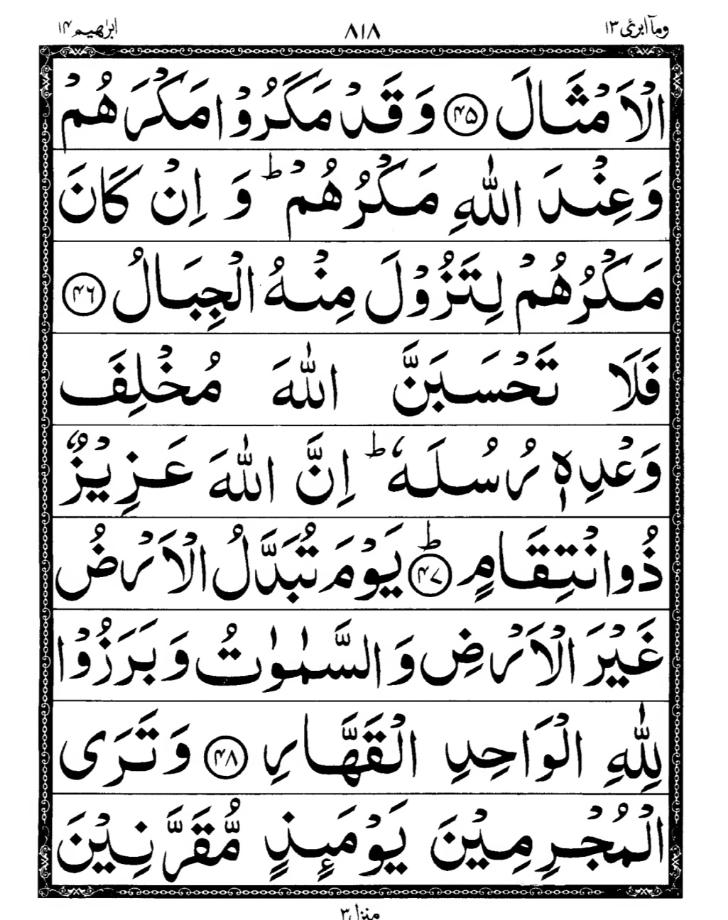 وماۤ ابرئ ١٣ ٨١٨ ابرٰهيم ١٤
الْاَمْثَالَ ﴿۴۵﴾ وَقَدْ مَكَرُوْا مَكْرَهُمْ
وَعِنْدَ اللّٰهِ مَكْرُهُمْ ؕ وَ اِنْ كَانَ
مَكْرُهُمْ لِتَزُوْلَ مِنْهُ الْجِبَالُ ﴿۴۶﴾
فَلَا تَحْسَبَنَّ اللّٰهَ مُخْلِفَ
وَعْدِهٖ رُسُلَهٗ ؕ اِنَّ اللّٰهَ عَزِيْزٌ
ذُوانْتِقَامٍ ﴿۴۷﴾ؕ يَوْمَ تُبَدَّلُ الْاَرْضُ
غَيْرَ الْاَرْضِ وَ السَّمٰوٰتُ وَ بَرَزُوْا
لِلّٰهِ الْوَاحِدِ الْقَهَّارِ ﴿۴۸﴾ وَ تَرَى
الْمُجْرِمِيْنَ يَوْمَىِٕذٍ مُّقَرَّنِيْنَ
منزل ٣